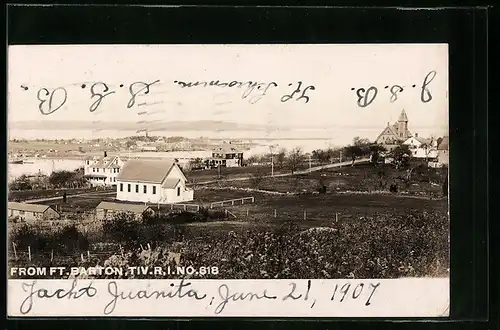 FROM FT. BARTON, TIV. R.I. NO. 618
Yacht Juanita, June 21, 1907